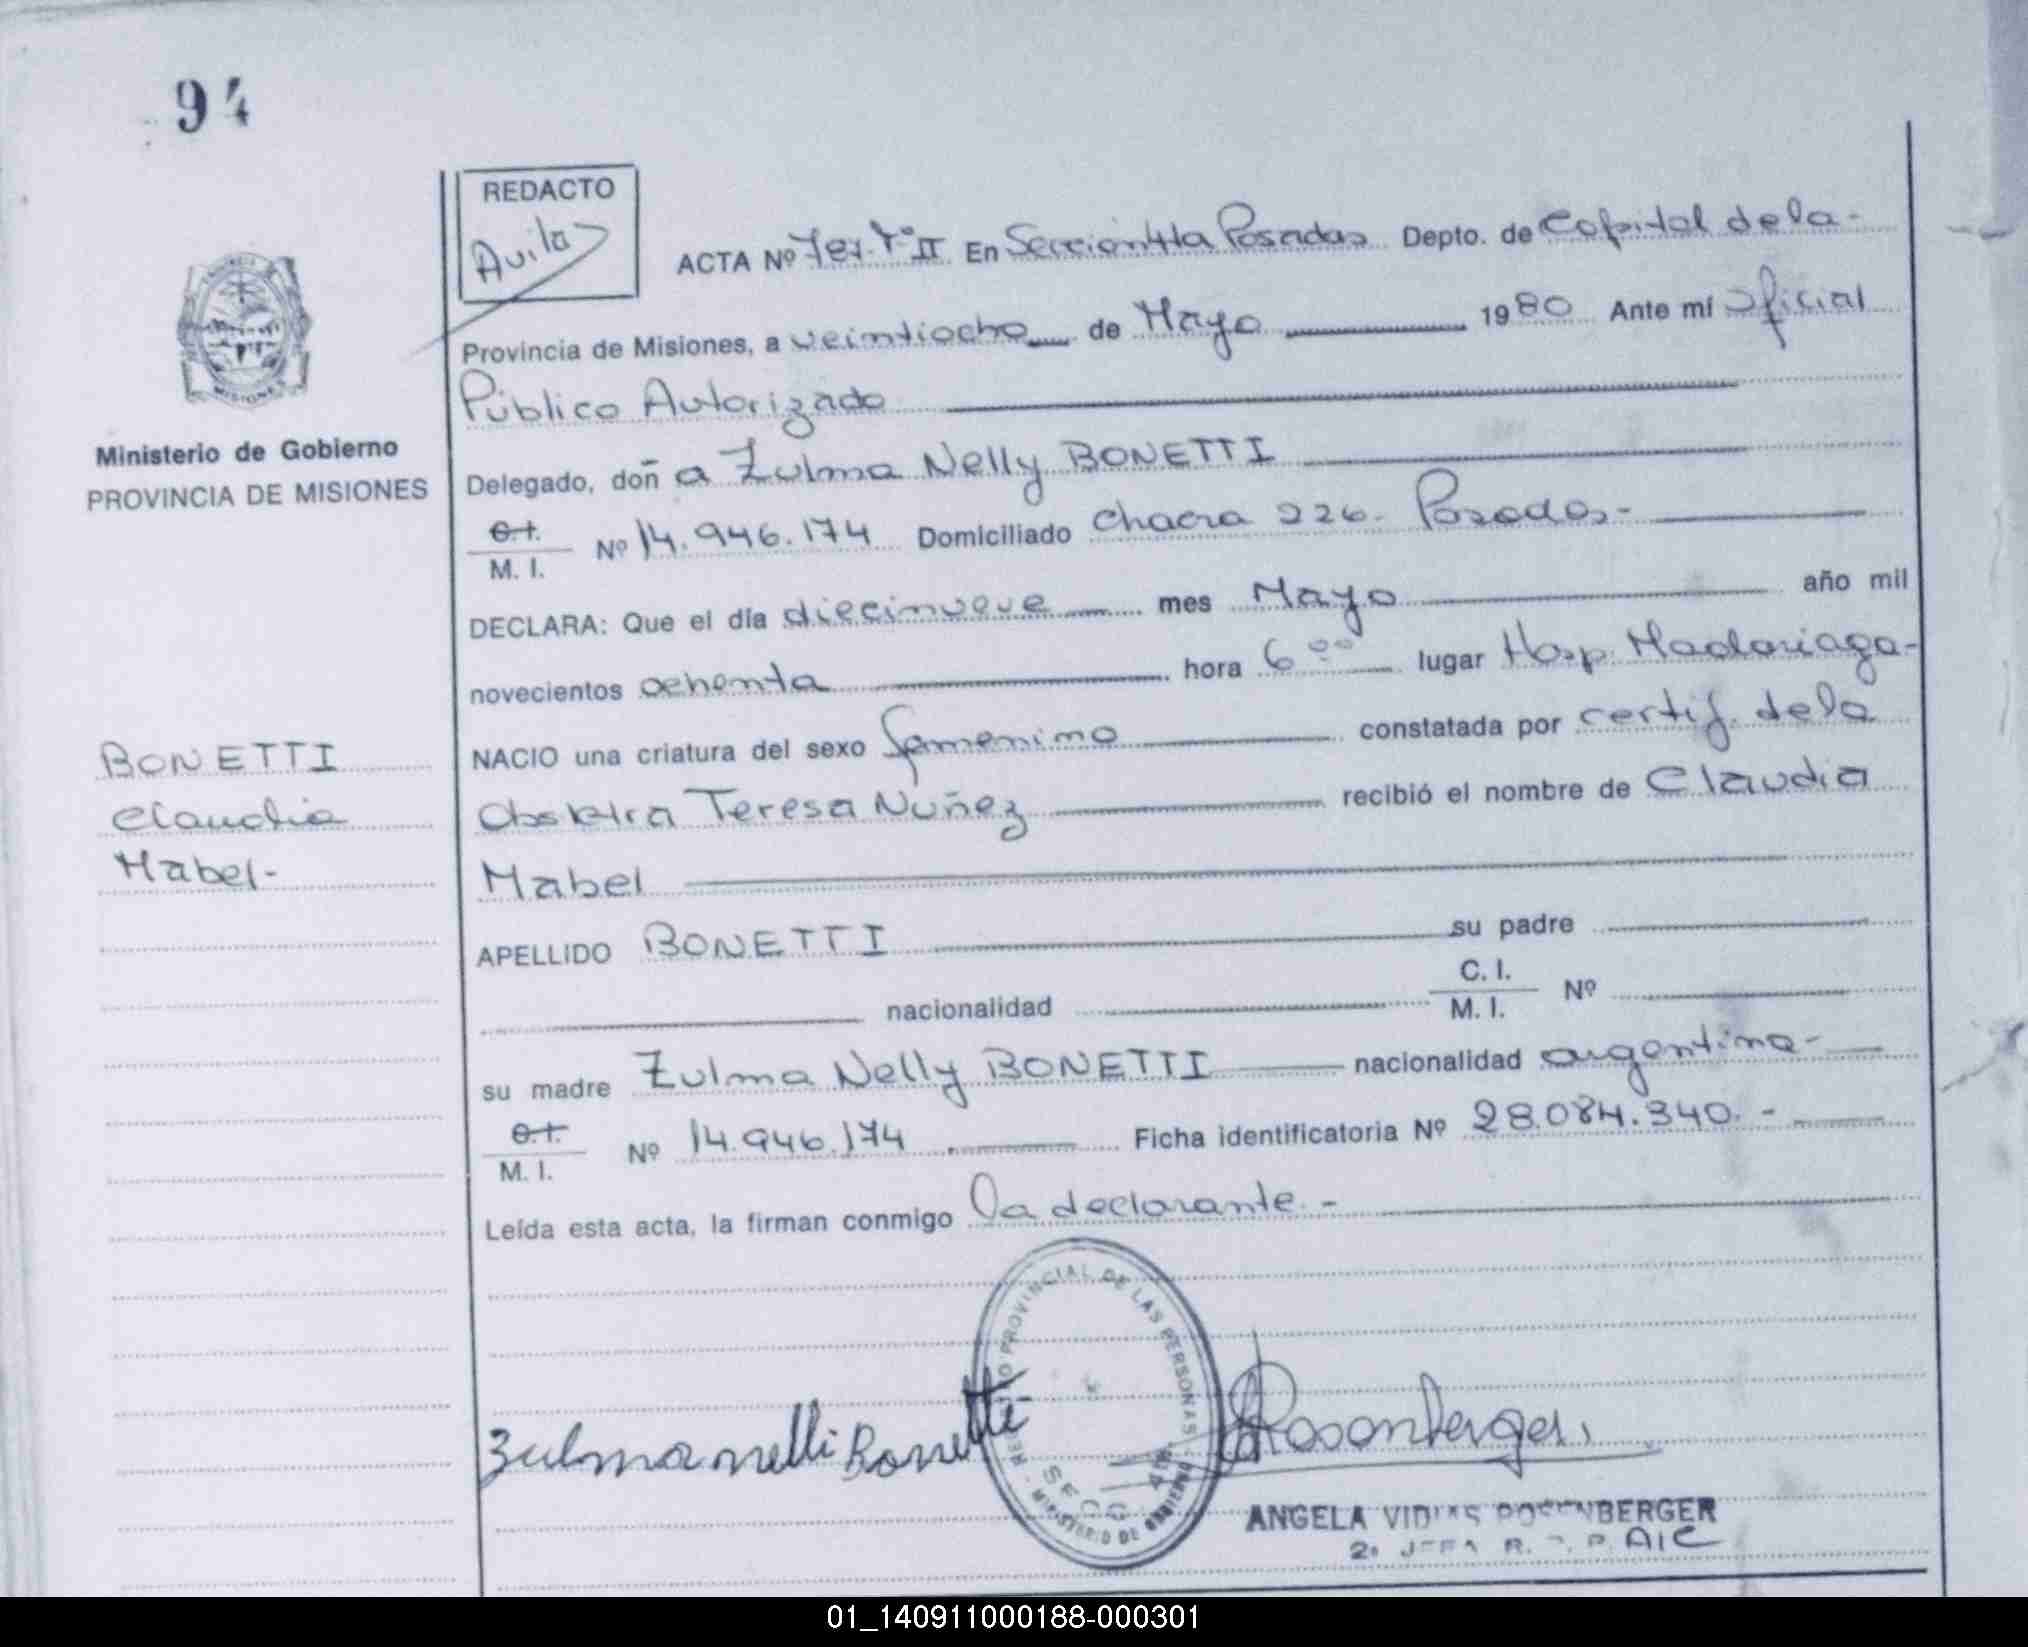 94
REDACTO
Avila
MISIONES
Ministerio de Gobierno
PROVINCIA DE MISIONES
BONETTI
Claudia
Mabel-
ACTA Nº Tº II En Sección 4ta Posadas Depto. de Capital de la-
Provincia de Misiones, a veintiocho de Mayo 1980 Ante mí Oficial
Público Autorizado
Delegado, doña Zulma Nelly BONETTI
C.I.
M. I. Nº 14.946.174 Domiciliado Chacra 226. Posadas-
DECLARA: Que el día diecinueve mes Mayo año mil
novecientos ochenta hora 6 00 lugar Hosp. Madariaga-
NACIO una criatura del sexo femenino constatada por certif. de la
Obstetra Teresa Nuñez recibió el nombre de Claudia
Mabel
APELLIDO BONETTI su padre
nacionalidad C. I.
M. I. Nº
su madre Zulma Nelly BONETTI nacionalidad argentina-
C.I.
M. I. Nº 14.946.174 Ficha identificatoria Nº 28.084.340.-
Leída esta acta, la firman conmigo la declarante.-
REGISTRO PROVINCIAL DE LAS PERSONAS
SECC. 4ta
MINISTERIO DE GOBIERNO
Zulma nelli Bonetti
Rosenberger
ANGELA VIDIAS ROSENBERGER
2a JEFA R. P. AIC
01_140911000188-000301